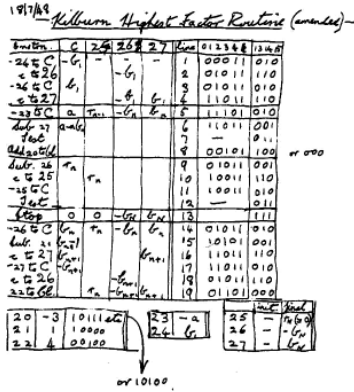 18/7/48
Kilburn Highest Factor Routine (amended)-
Instn. C 25 26 27 line 0 1 2 3 4 13 14 15
-24 to C -b₁ - - - 1 00011 010
c to 26 -b₁ 2 01011 110
-26 to C b₁ 3 01011 010
c to 27 -b₁ b₁ 4 11011 110
-23 to C a Tₙ₋₁ -bₙ bₙ 5 11101 010
Sub. 27 a-bₙ 6 11011 001
Test 7 - 011
Add 20 to bl. 8 00101 100 or 000
Sub. 26 Tₙ 9 01011 001
c to 25 Tₙ 10 10011 110
-25 to C 11 10011 010
Test 12 - 011
Stop 0 0 -bN bN 13 111
-26 to C bₙ Tₙ -bₙ bₙ 14 01011 010
Sub. 21 bₙ₊₁ 15 10101 001
c to 27 bₙ₊₁ bₙ₊₁ 16 11011 110
-27 to C -bₙ₊₁ 17 11011 010
c to 26 -bₙ₊₁ 18 01011 110
22 to bl. Tₙ -bₙ₊₁ bₙ₊₁ 19 01101 000
init. final
20 -3 10111 etc 23 -a 25 -
21 1 10000 24 b₁ 26 - -bN
22 4 00100 27 - bN
or 10100